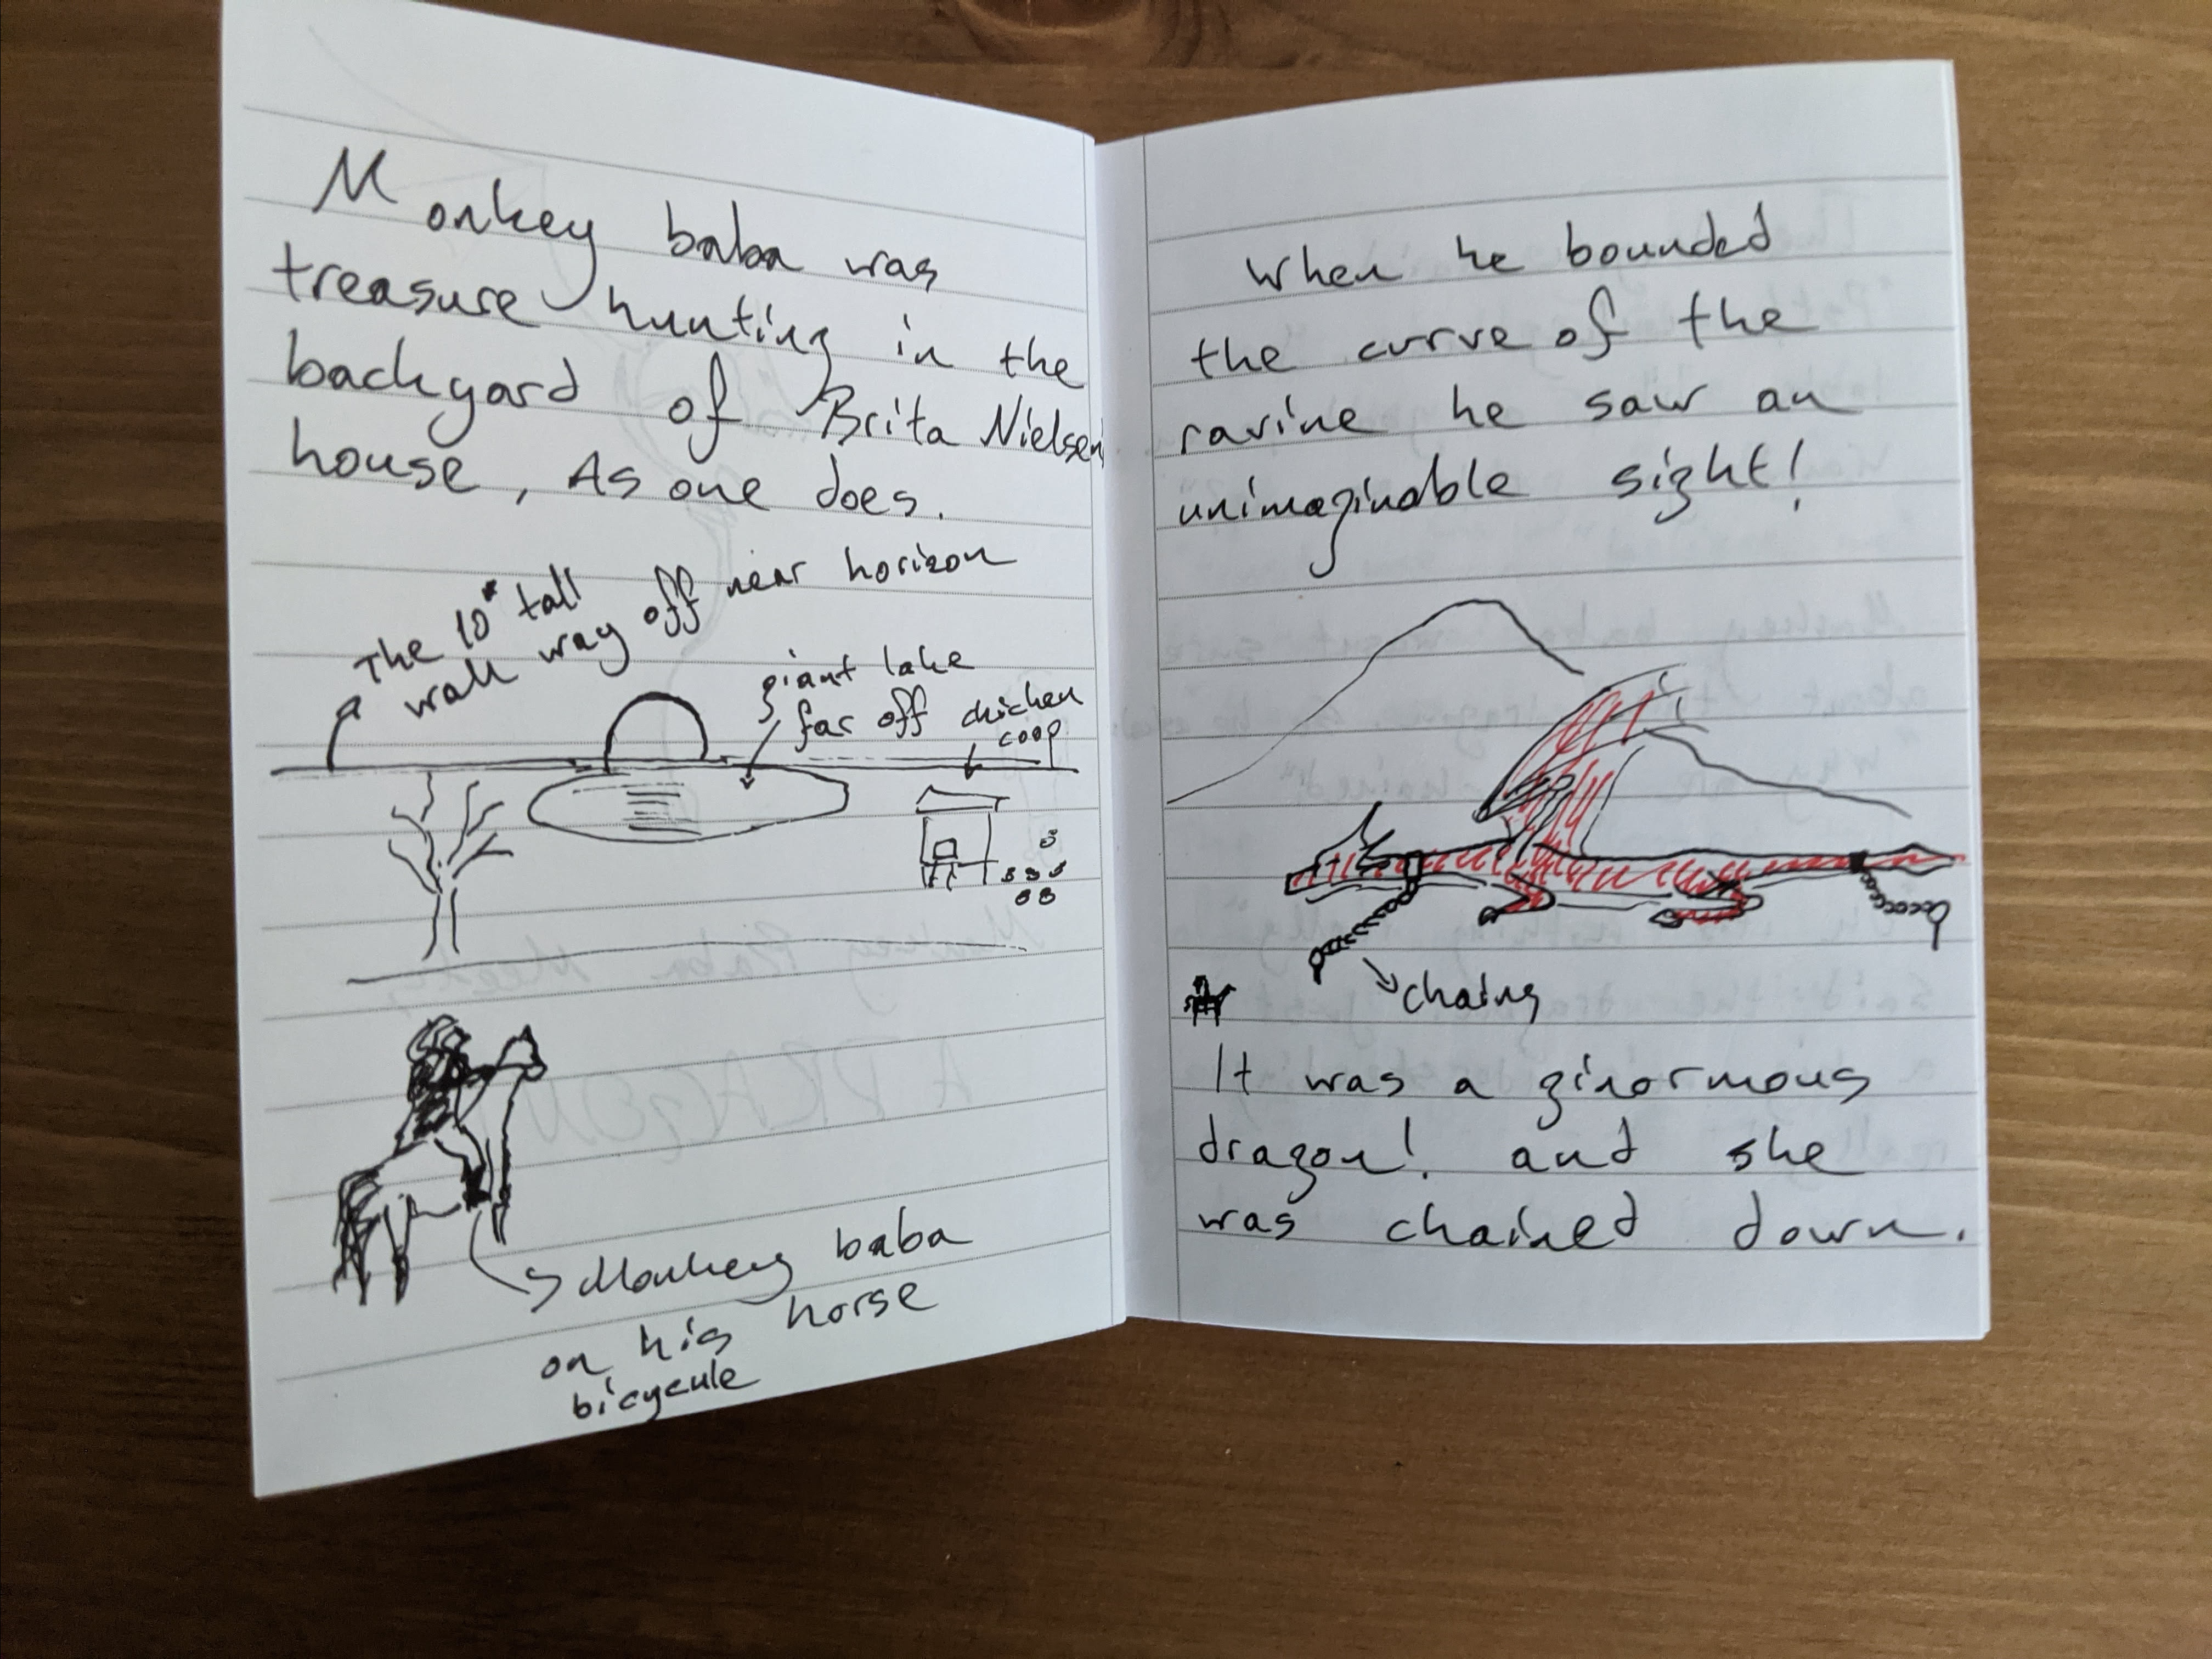 Monkey baba was
treasure hunting in the
backyard of Brita Nielsen
house, As one does.
The 10" tall
wall way off near horizon
giant lake
far off chicken
coop
Monkey baba
on his horse
bicycule
When he bounded
the curve of the
ravine he saw an
unimaginable sight!
chains
It was a ginormous
dragon! and she
was chained down.